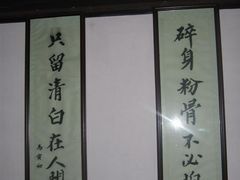 碎身粉骨不必怕
只留清白在人間